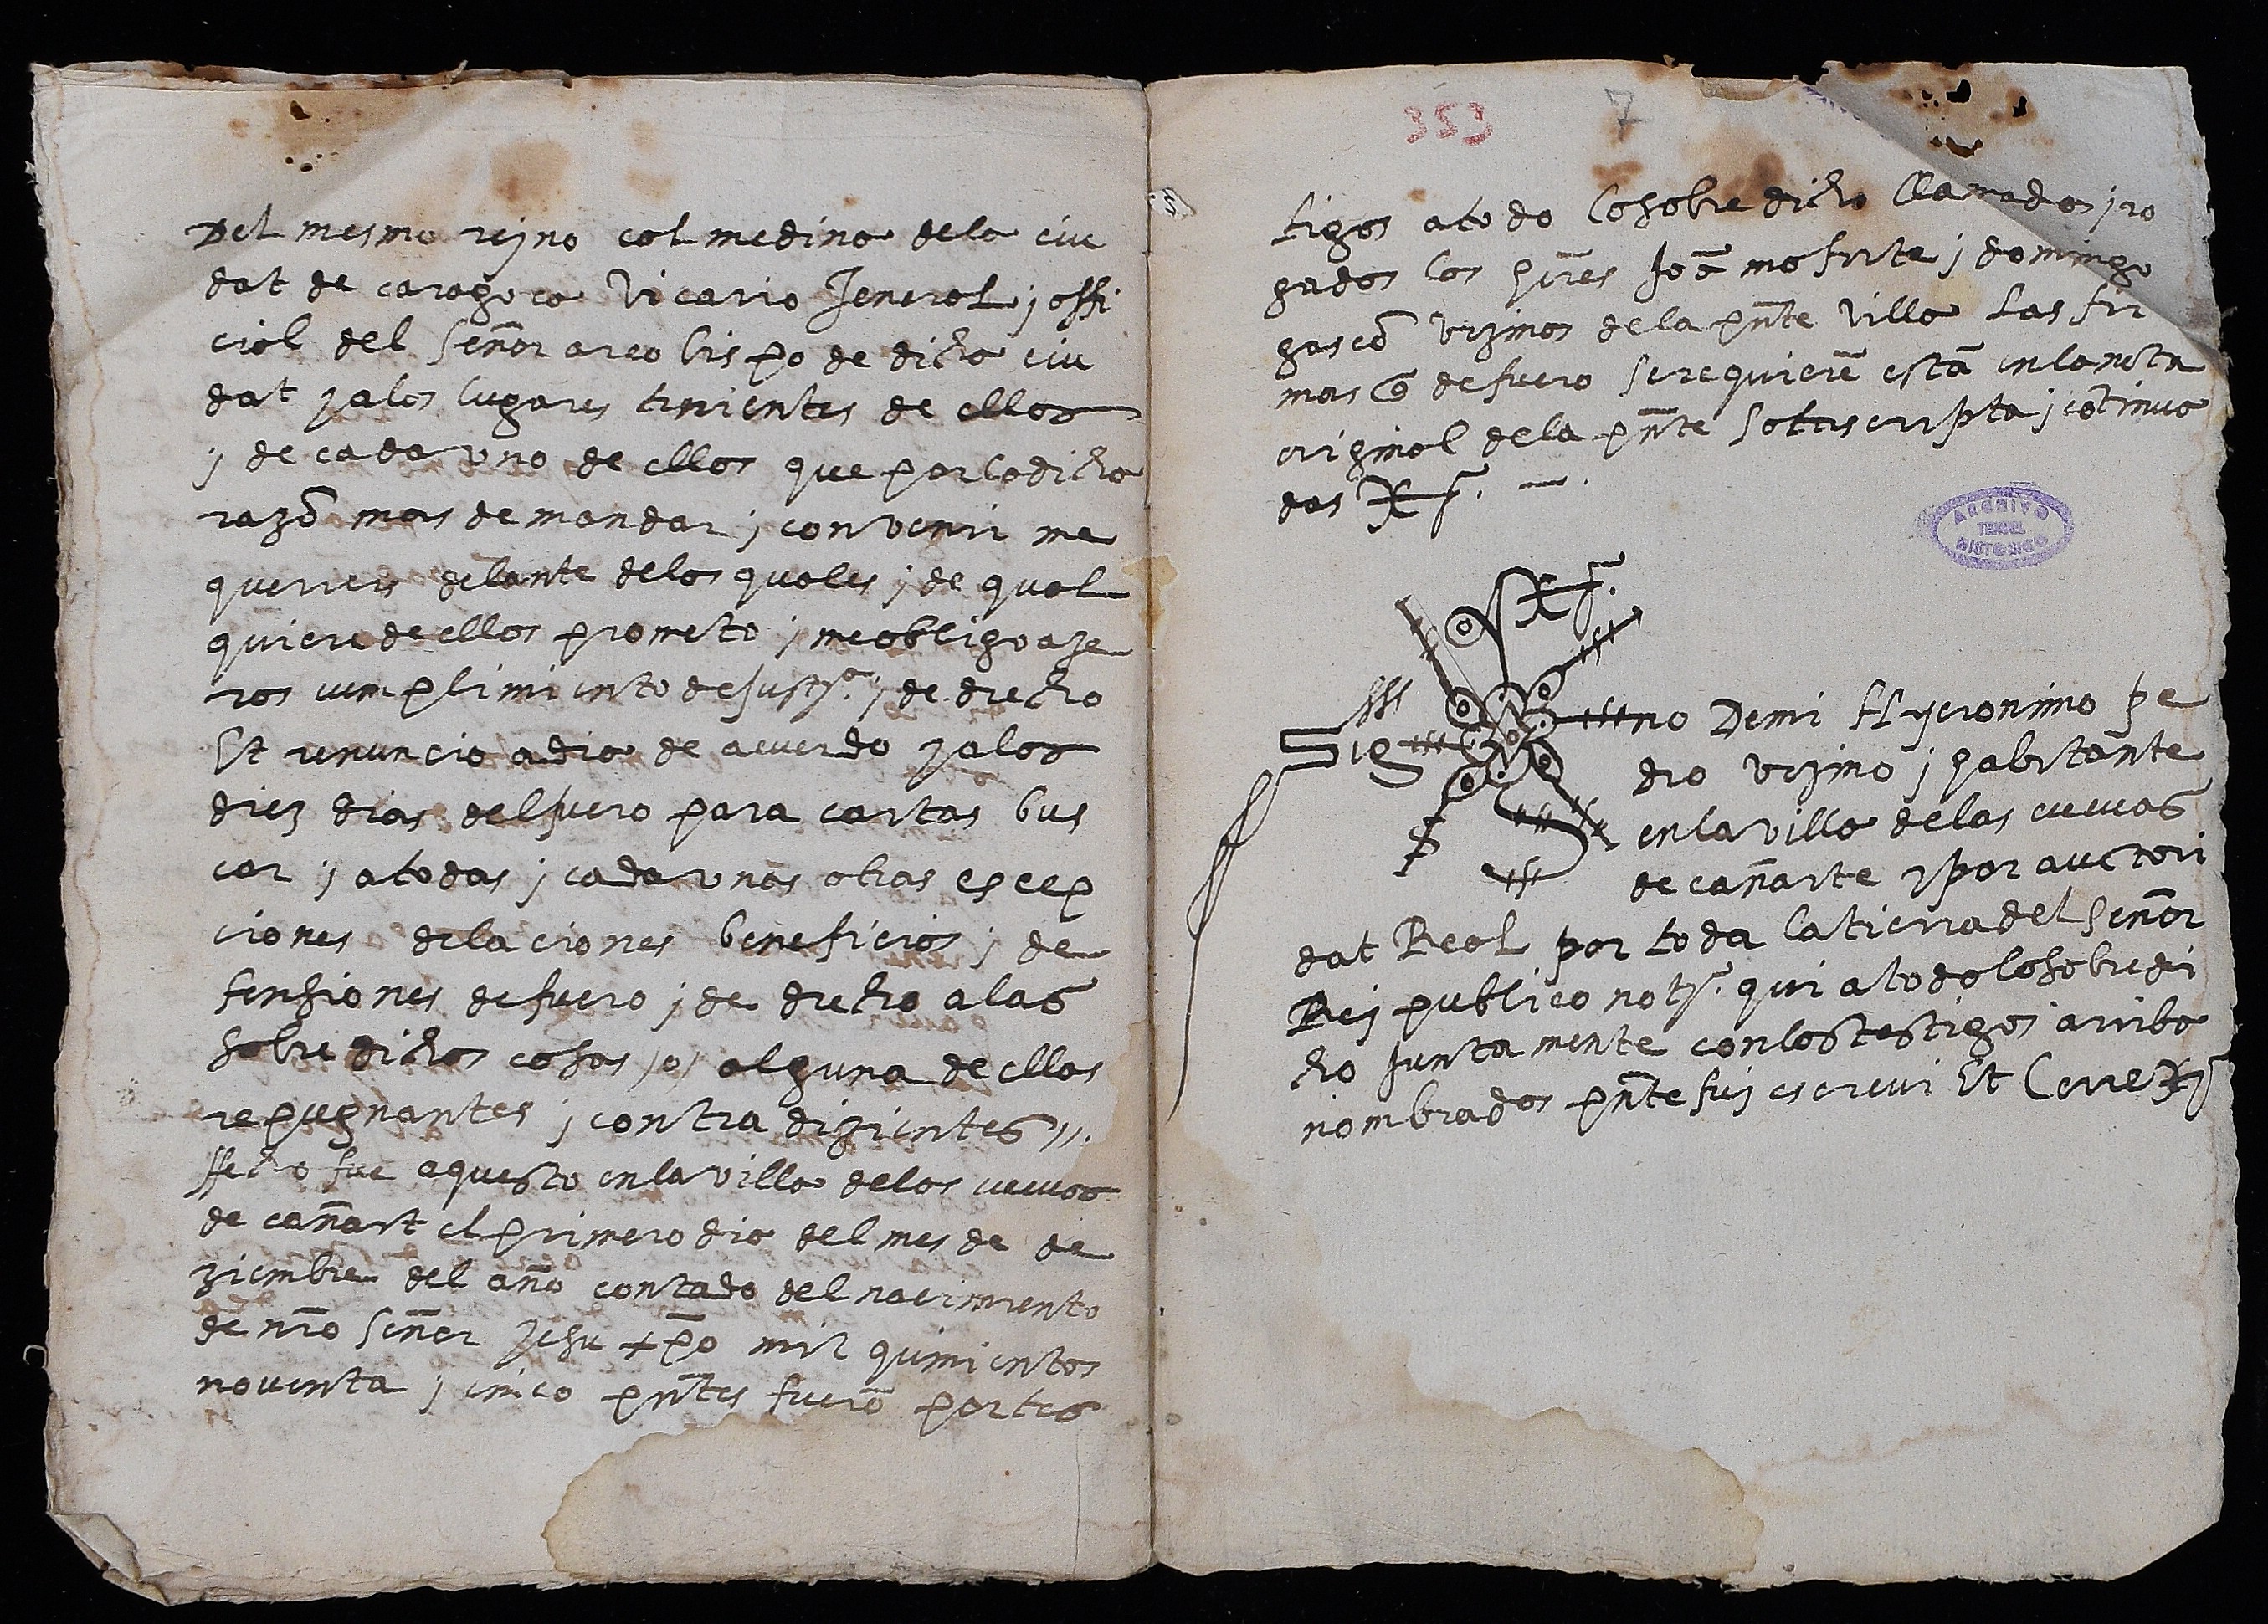 Del mesmo reyno çalmedina dela ciu
dat de caragoça Vicario Jeneral y offi
cial del Señor arcobispo de dicha ciu
dat y a los lugares tinientes de ellos
y de cada uno de ellos que por la dicha
razō mas demandar y convenir me
querreis delante de los quales y de qual
quiere de ellos prometo y me obligo aze
ros cumplimiento de justª y de drecho
Et renuncio a dia de acuerdo y a los
diez dias del fuero para cartas bus
car y a todas y cada unas otras escep
ciones dilaciones beneficios y de
fensiones de fuero y de drecho a las
sobre dichas cosas /o/ alguna de ellas
repugnantes y contradizientes //.
ffecho fue aquesto en la villa de las cuevas
de cañart el primero dia del mes de de
ziembre del año contado del nacimiento
de nr̄o Señor Jesu xp̄o mil quinientos
noventa y cinco pn̄tes fuerō por tes
353 7
tigos a todo lo sobre dicho llamados y ro
gados los hr̄es Joā mōforte y domingo
gascō vezinos de la pn̄te villa Las fir
mas q̄ de fuero se requierē estā en la nota
original de la pn̄te sotascripta y cōtinua
das
ARCHIVO
TERUEL
HISTORICO
Sig no De mi Hyeronimo pe
dro vezino y habitante
en la villa de las cuevas
de cañarte y por auctori
dat Real por toda la tierra del Señor
Rey publico notrº qui a todo lo sobre di
cho Juntamente con los testigos arriba
nombrados pn̄te fuy escrevi Et Cerre